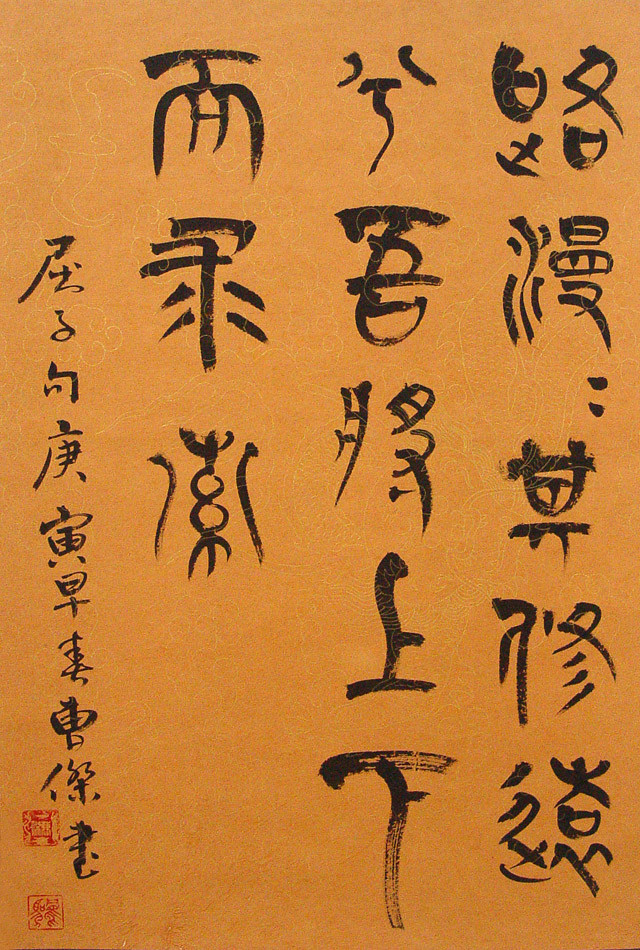 路漫〻其修遠
兮吾将上下
而求索
屈子句庚寅早春曹傑书